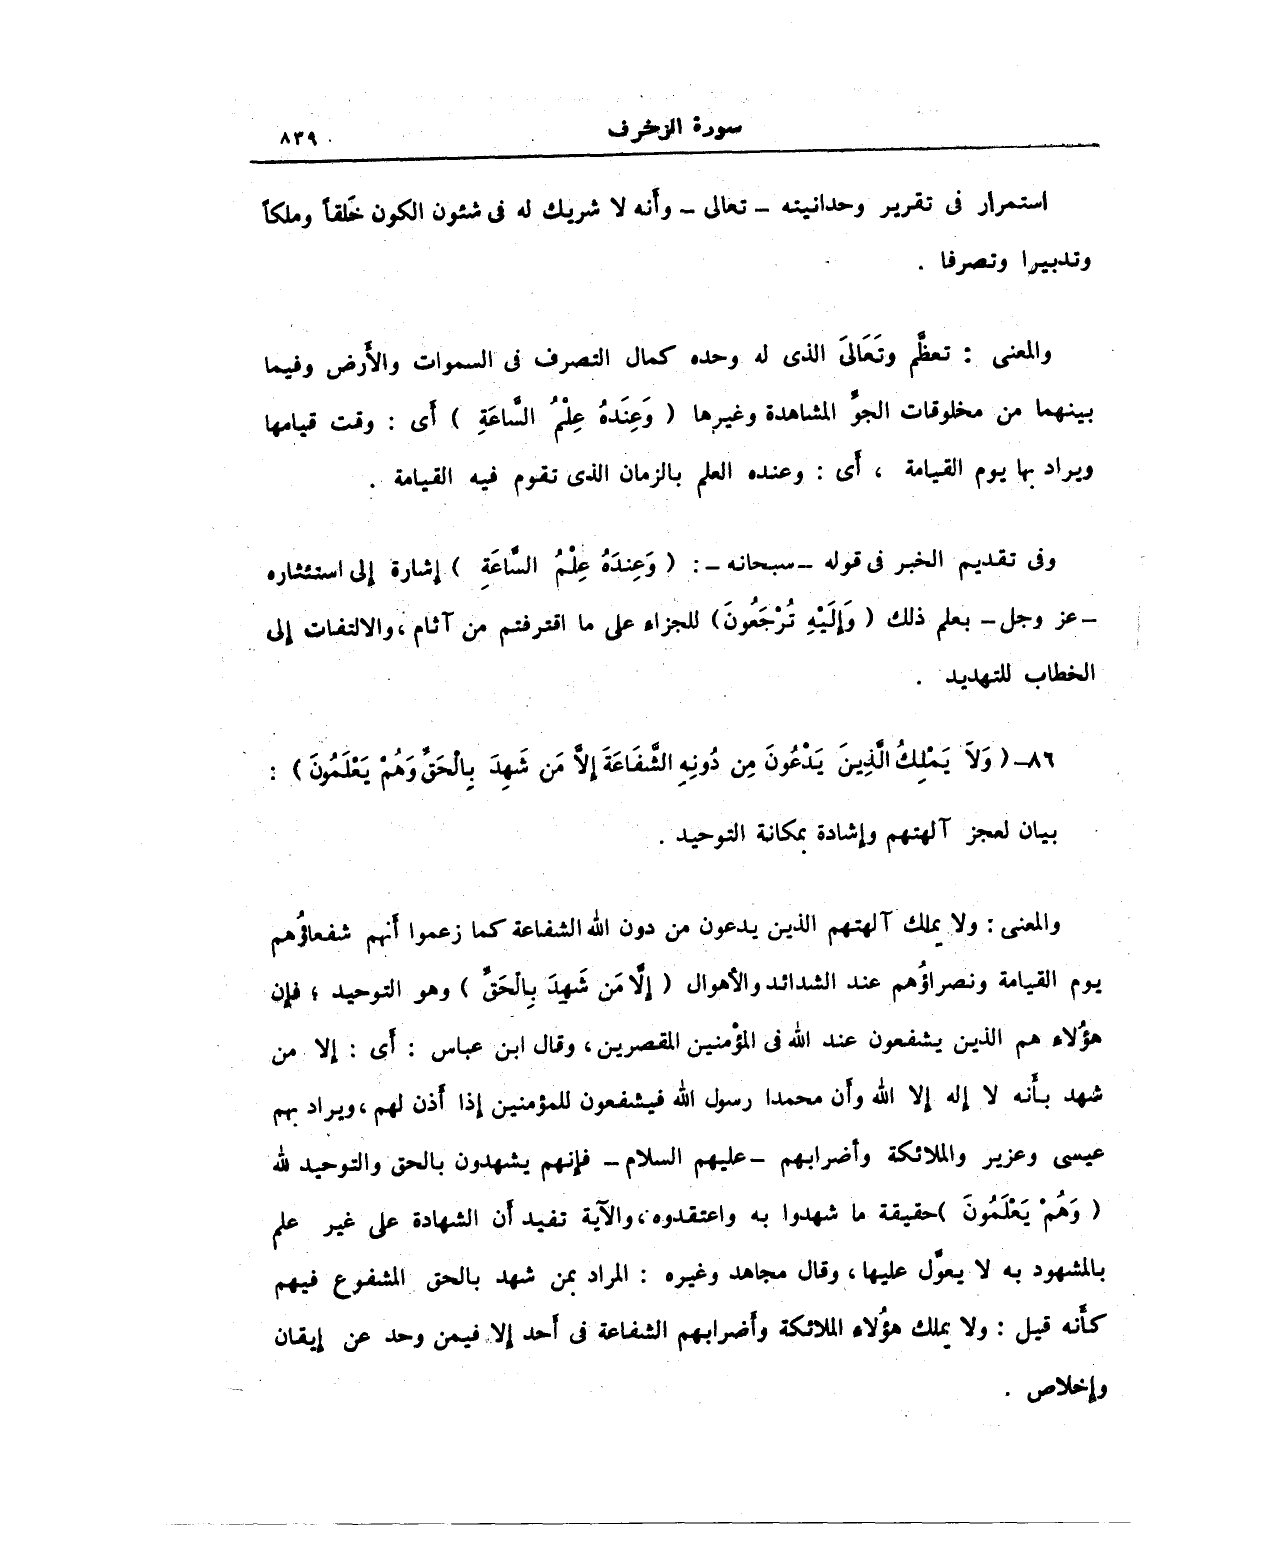 سورة الزخرف
٨٣٩
استمرار فى تقرير وحدانيته – تعالى – وأنه لا شريك له فى شئون الكون خَلقاً وملكاً
وتدبيرا وتصرفا .
والمعنى : تعظَّم وتَعَالىَ الذى له وحده كمال التصرف فى السموات والأَرض وفيما
بينهما من مخلوقات الجوِّ المشاهدة وغيرها ( وَعِندَهُ عِلْمُ السَّاعَةِ ) أَى : وقت قيامها
ويراد بها يوم القيامة ، أَى : وعنده العلم بالزمان الذى تقوم فيه القيامة .
وفى تقديم الخبر فى قوله – سبحانه – : ( وَعِندَهُ عِلْمُ السَّاعَةِ ) إشارة إلى استئثاره
– عز وجل – بعلم ذلك ( وَإِلَيْهِ تُرْجَعُونَ) للجزاء على ما اقترفتم من آثام ، والالتفات إلى
الخطاب للتهديد .
٨٦– ( وَلَا يَمْلِكُ الَّذِينَ يَدْعُونَ مِن دُونِهِ الشَّفَاعَةَ إِلاَّ مَن شَهِدَ بِالْحَقِّ وَهُمْ يَعْلَمُونَ ) :
بيان لعجز آلهتهم وإشادة بمكانة التوحيد .
والمعنى : ولا يملك آلهتهم الذين يدعون من دون الله الشفاعة كما زعموا أَنهم شفعاؤُهم
يوم القيامة ونصراؤُهم عند الشدائد والأهوال ( إِلَّا مَن شَهِدَ بِالْحَقِّ ) وهو التوحيد ؛ فإن
هؤُلاء هم الذين يشفعون عند الله فى المؤْمنين المقصرين ، وقال ابن عباس : أَى : إلا من
شهد بأَنه لا إله إلا الله وأَن محمدا رسول الله فيشفعون للمؤمنين إذا أَذن لهم ، ويراد بهم
عيسى وعزير والملائكة وأضرابهم – عليهم السلام – فإنهم يشهدون بالحق والتوحيد لله
( وَهُمْ يَعْلَمُونَ ) حقيقة ما شهدوا به واعتقدوه ، والآية تفيد أَن الشهادة على غير علم
بالمشهود به لا يعوَّل عليها ، وقال مجاهد وغيره : المراد بمن شهد بالحق المشفوع فيهم
كأَنه قيل : ولا يملك هؤُلاء الملائكة وأَضرابهم الشفاعة فى أَحد إلا فيمن وحد عن إيقان
وإخلاص .